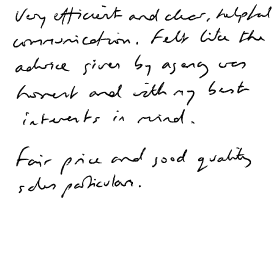 Very efficient and clear, helpful
communication. Felt like the
advice given by agency was
honest and with my best
interests in mind.
Fair price and good quality
sales particulars.